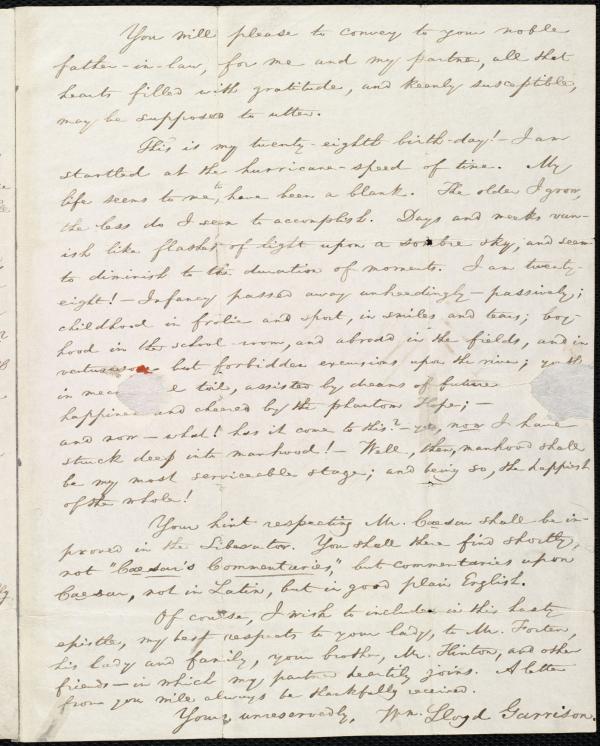 You will please to convey to your noble
father-in-law, for me and my partner, all that
hearts filled with gratitude, and keenly susceptible,
may be supposed to utter.
This is my twenty-eighth birth-day!—I am
startled at the hurricane-speed of time. My
life seems to me, to have been a blank. The older I grow,
the less do I seem to accomplish. Days and weeks van-
ish like flashes of light upon a sombre sky, and seem
to diminish to the duration of moments. I am twenty-
eight!—Infancy passed away unheedingly—passively;
childhood in frolic and sport, in smiles and tears; boy-
hood in the school-room, and abroad in the fields, and in
but forbidden excursions upon the river; youth
in toil, assisted by dreams of future
happiness and cheered by the phantom Hope;—
and now—what! has it come to this?—yes, now I have
struck deep into manhood!—Well, then, manhood shall
be my most serviceable stage; and being so, the happiest
of the whole!
Your hint respecting Mr. Cæsar shall be im-
proved in the Liberator. You shall there find shortly,
not "Cæsar's Commentaries," but commentaries upon
Cæsar, not in Latin, but in good plain English.
Of course, I wish to include in this hasty
epistle, my best respects to your lady, to Mr. Forten,
his lady and family, your brother, Mr. Hinton, and other
friends—in which my partner heartily joins. A letter
from you will always be thankfully received.
Yours, unreservedly, Wm. Lloyd Garrison.